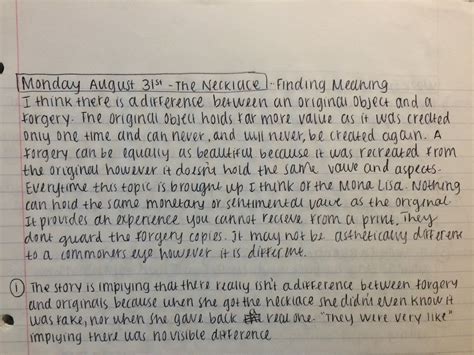 Monday August 31st - The Necklace - Finding Meaning
I think there is a difference between an original object and a
forgery. The original object holds far more value as it was created
only one time and can never, and will never, be created again. A
forgery can be equally as beautiful because it was recreated from
the original however it doesnt hold the same value and aspects.
Everytime this topic is brought up I think of the Mona Lisa. Nothing
can hold the same monetary or sentimental value as the original.
It provides an experience you cannot recieve from a print, They
dont guard the forgery copies. It may not be asthetically different
to a commoners eye however it is different.
① The story is implying that there really isn't a difference between forgery
and originals because when she got the necklace she didn't even know it
was fake, nor when she gave back real one. "They were very like"
implying there was no visible difference